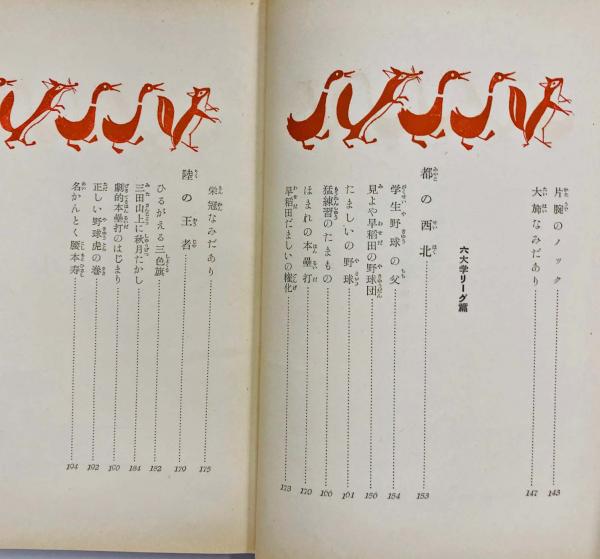 片腕のノック 143
大旆なみだあり 147
六大学リーグ篇
都の西北 153
学生野球の父 154
見よや早稲田の野球団 156
たましいの野球 161
猛練習のたまもの 166
ほまれの本壘打 170
早稲田だましいの権化 173
栄冠なみだあり 175
陸の王者 179
ひるがえる三色旗 182
三田山上に秋月たかし 184
劇的本壘打のはじまり 190
正しい野球虎の巻 192
名かんとく腰本寿 194